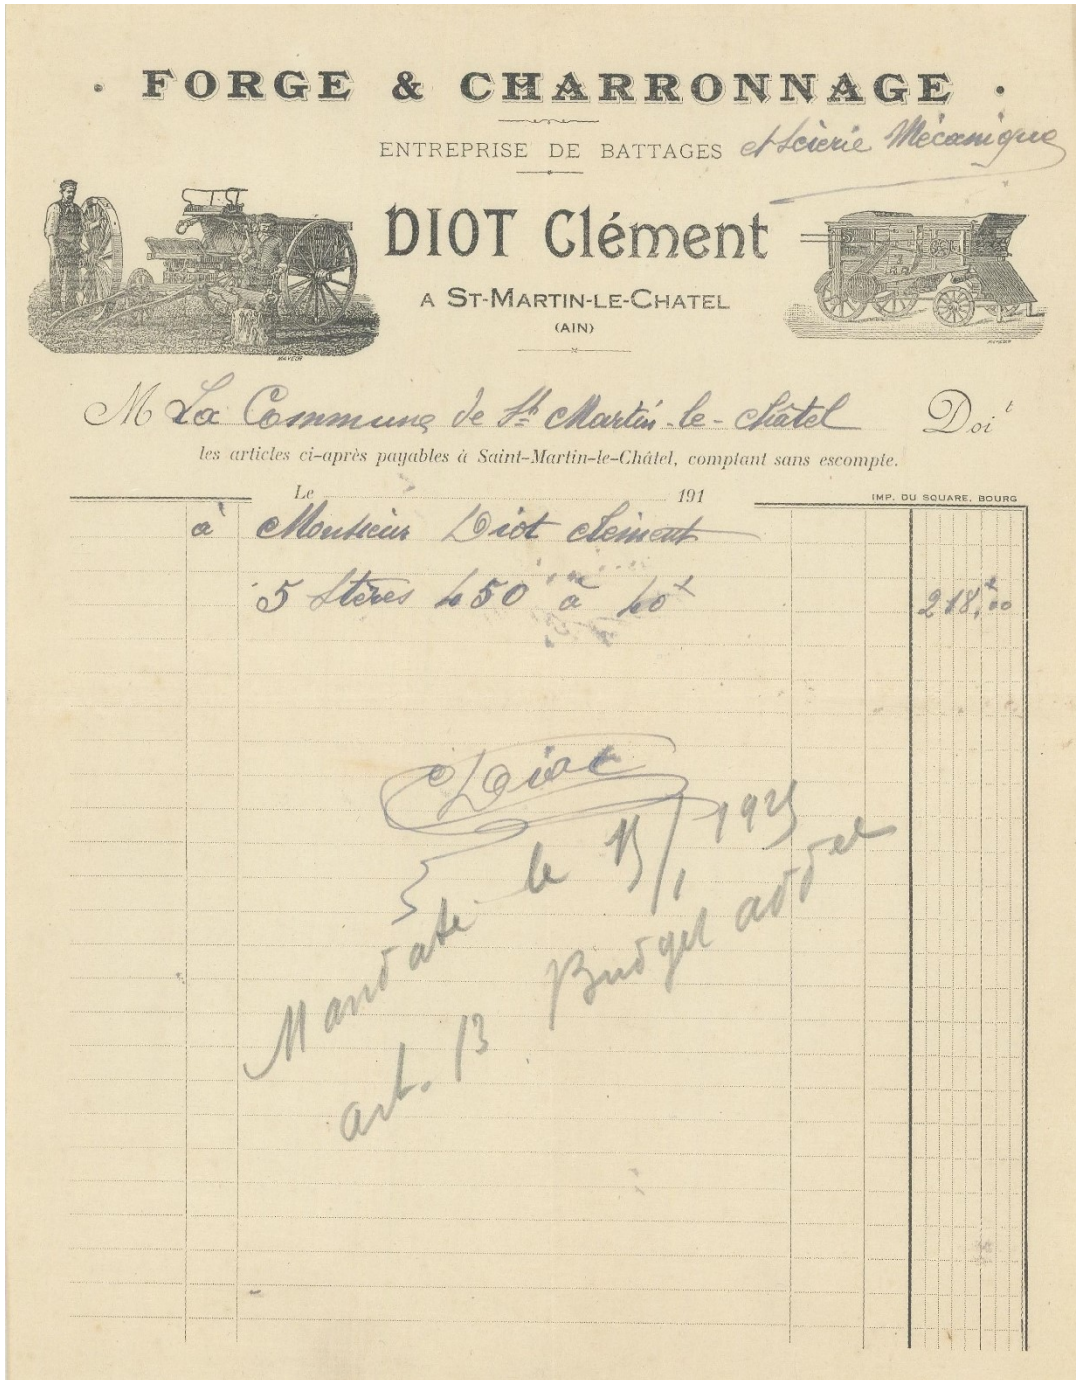 · FORGE & CHARRONNAGE ·
ENTREPRISE DE BATTAGES et Scierie Mécanique
DIOT Clément
A ST-MARTIN-LE-CHATEL
(AIN)
M La Commune de St Martin-le-Châtel Doit
les articles ci-après payables à Saint-Martin-le-Châtel, comptant sans escompte.
Le 191
IMP. DU SQUARE, BOURG
à Monsieur Diot Clément
5 Stères 450 à 40f
218,f00
CDiot
Mandaté le 15/1 1925
art. 13 Budget addel